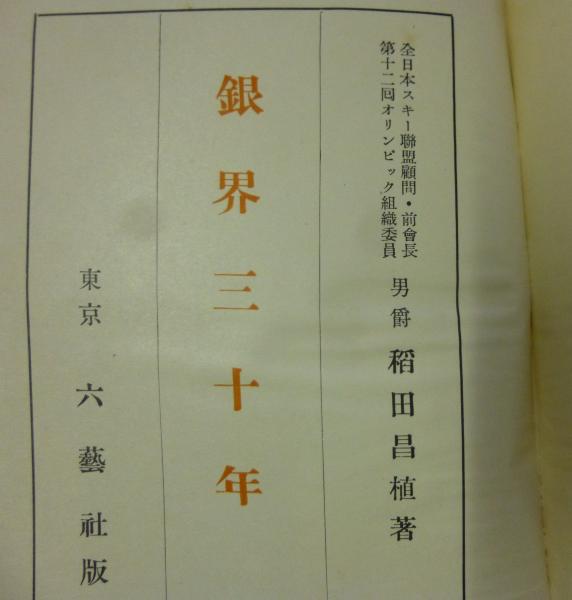 全日本スキー聯盟顧問・前會長
第十二囘オリンピック組織委員
男爵 稻田昌植著
銀界三十年
東京 六藝社版